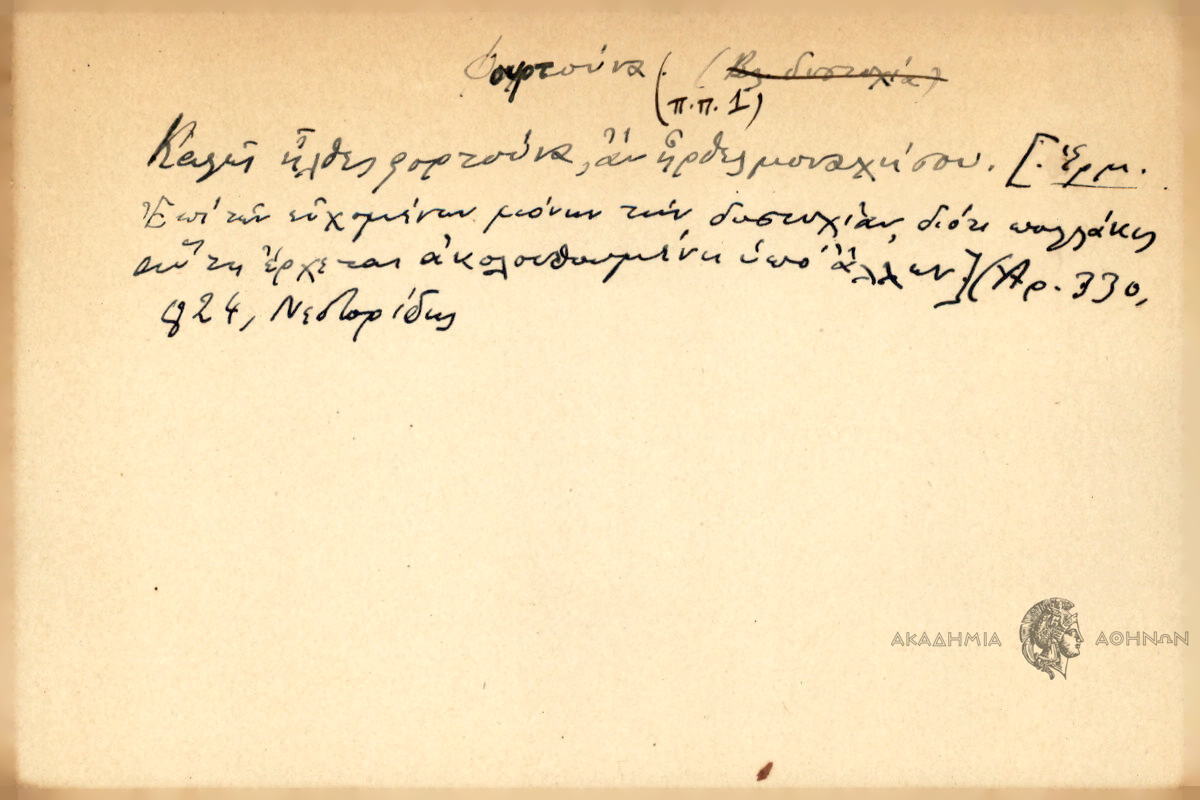 Φουρτούνα (Βλ. δυστυχία)
(π.π. 1)
Καλῶς ἦλθες φορτούνα, ἂν ἦρθες μοναχή σου. [Ἑρμ.
Ἐπὶ τῶν εὐχομένων μόνων τὴν δυστυχίαν, διότι πολλάκις
αὕτη ἔρχεται ἀκολουθουμένη ὑπὸ ἄλλων] (Ἀρ. 330,
824, Νεστορίδης
ΑΚΑΔΗΜΙΑ ΑΘΗΝΩΝ